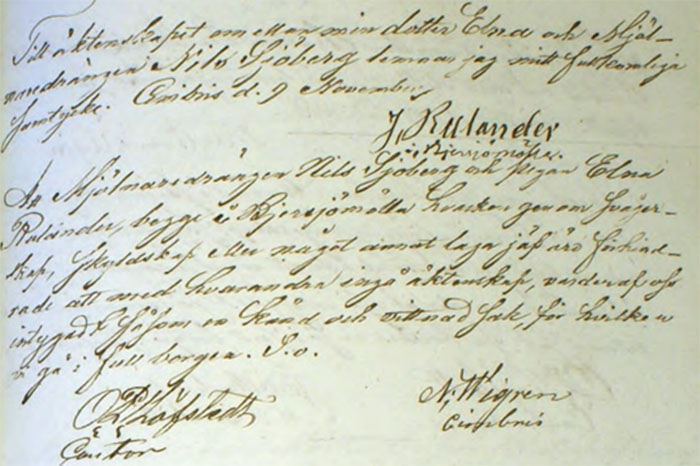 Till äktenskapet om ellan min dotter Elna och Mjöl-
naredrängen Nils Sjöberg lemnas jag mitt fullkomliga
samtycke. Cimbris d. 9 November
J, Rulander
i Bjersjömölla.
At Mjölnaredrängen Nils Sjöberg och pigan Elna
Rulander, begge i Bjersjömölla hvarken genom Svåger-
skap, Skyldskap eller något annat laga jäf äro förhind-
rade att med hvarandra ingå äktenskap, varder af oss
intygadt såsom en känd och vittnad sak, för hvilken
vi gå i full borgen. D.o.
Löfstedt
N, Wigren
Cantor
Cimbris